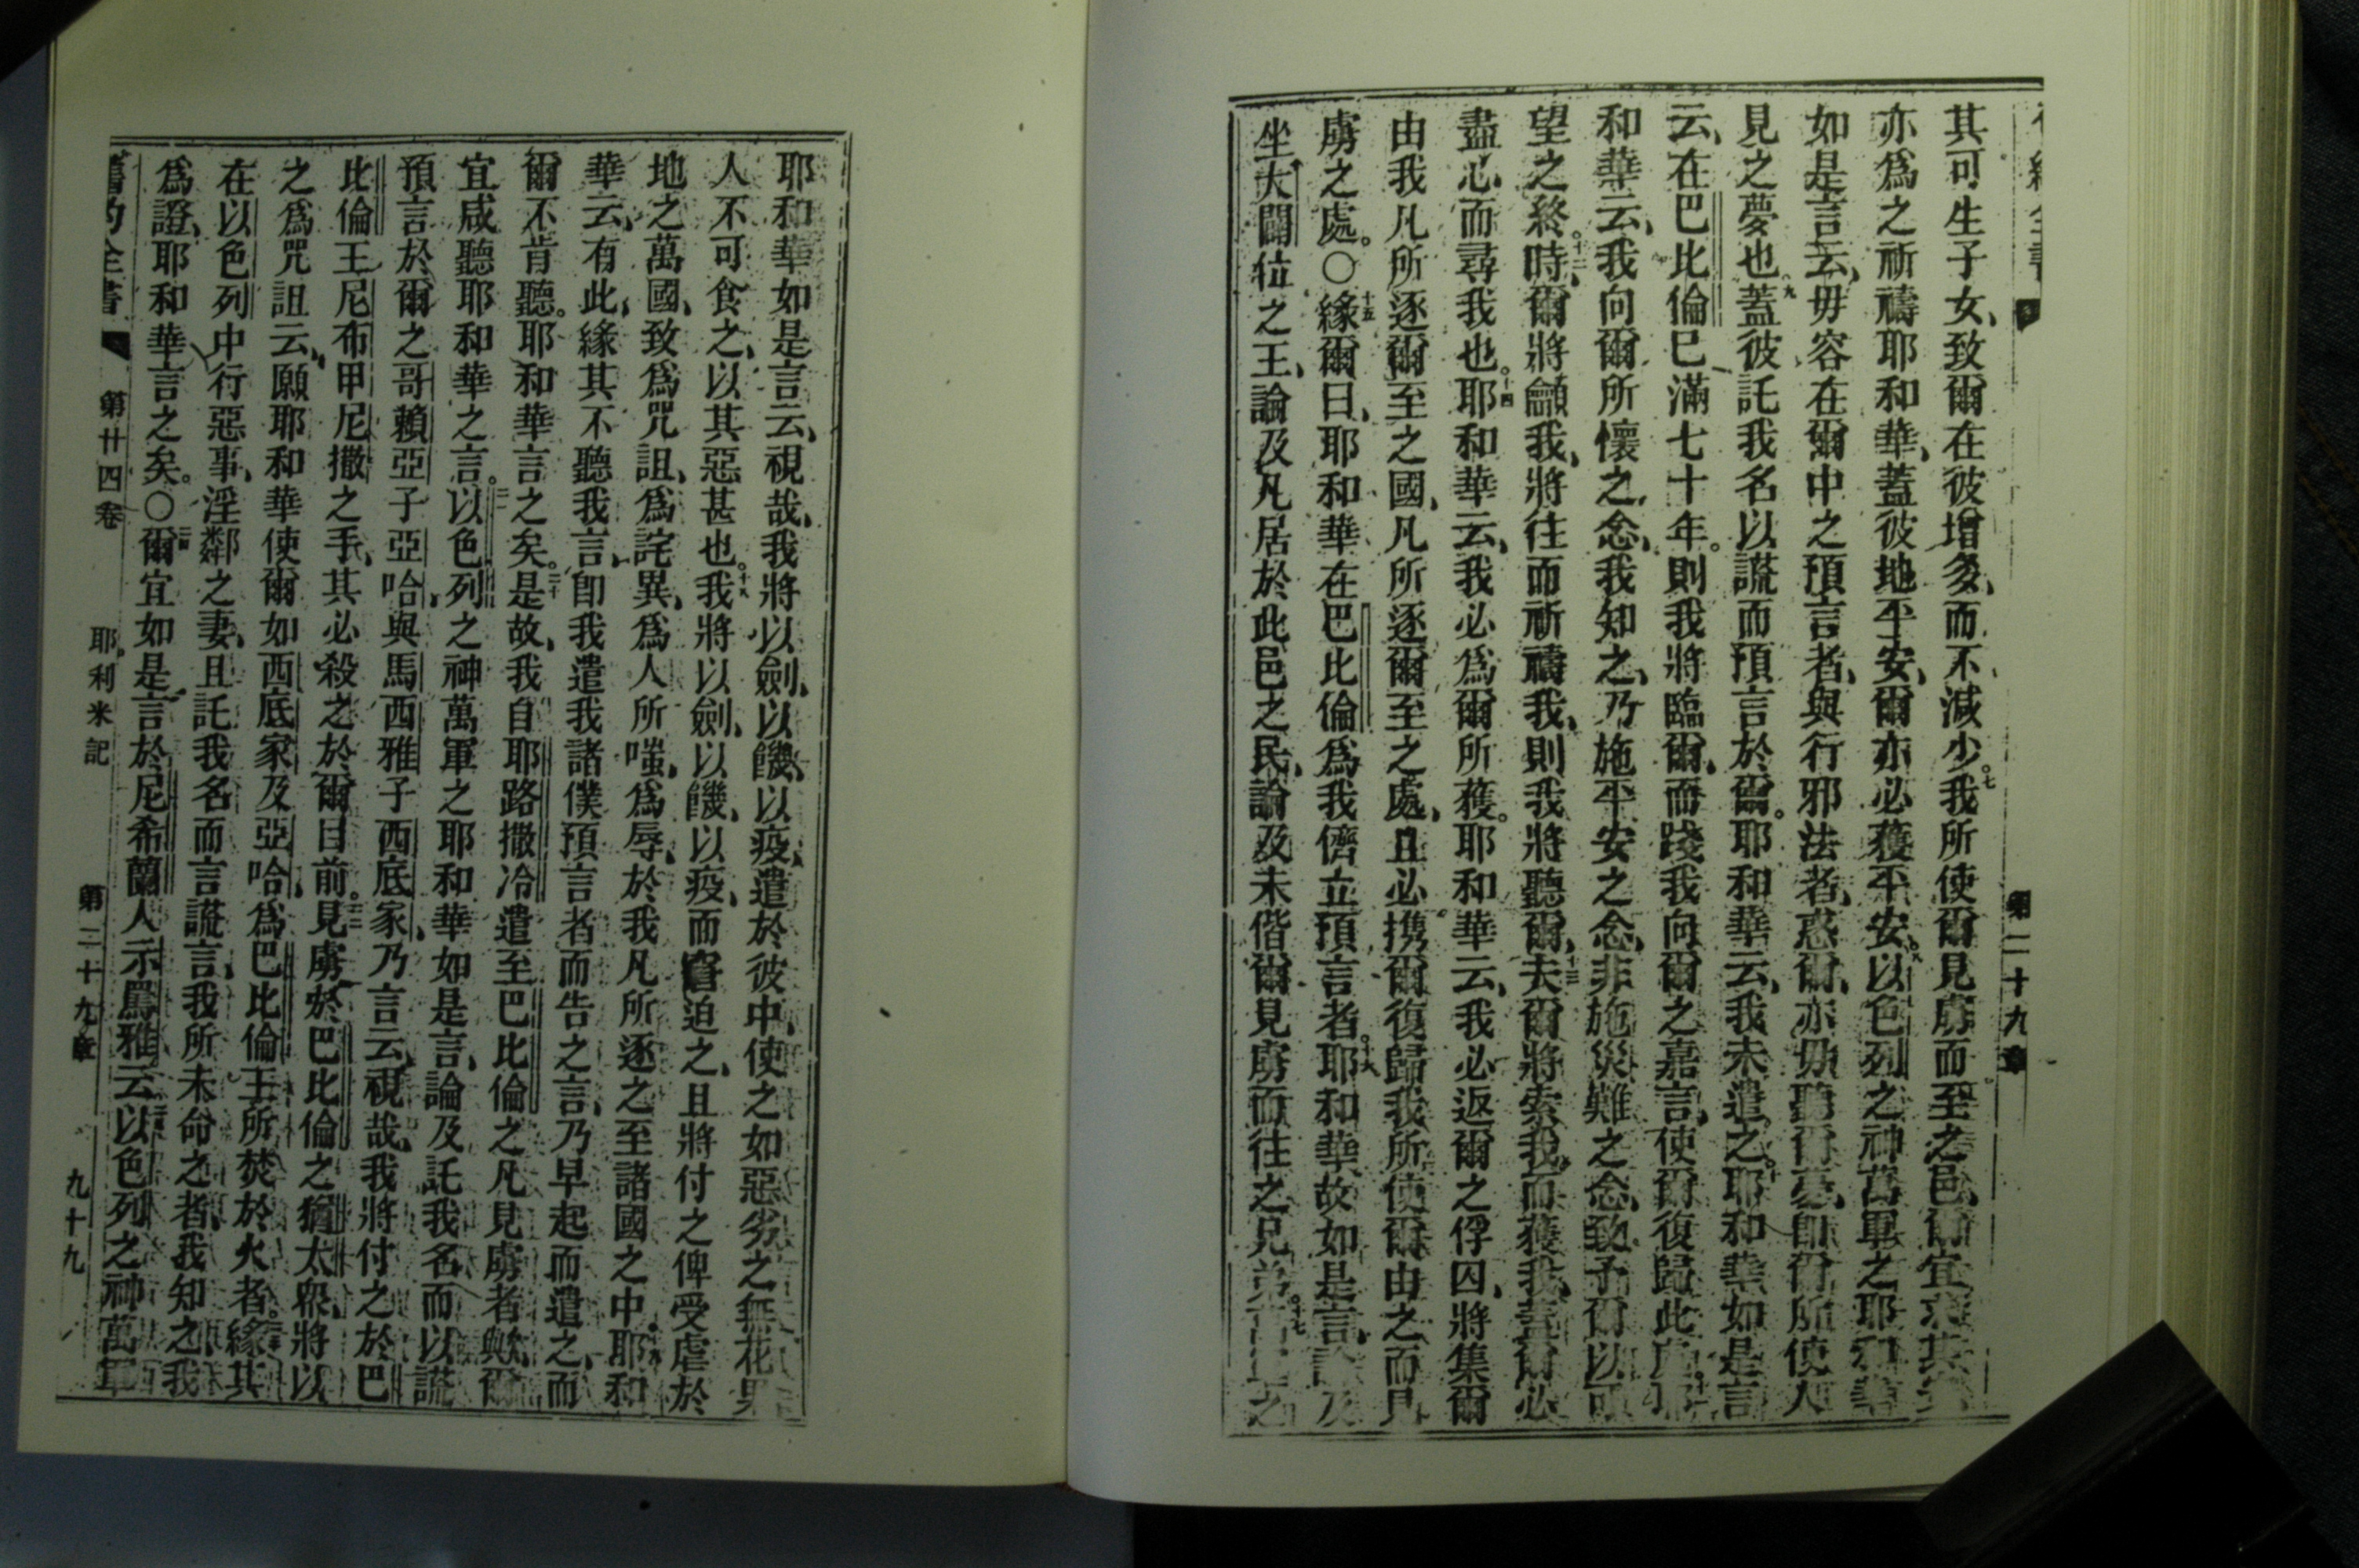 第二十九章
其可生子女、致爾在彼增多、而不減少。七我所使爾見虜而至之邑、爾宜求其
亦爲之祈禱耶和華、蓋彼地平安、爾亦必獲平安。八以色列之神萬軍之耶和華
如是言云、毋容在爾中之預言者、與行邪法者、惑爾、亦毋聽爾夢、卽爾所使人
見之夢也。九蓋彼託我名以謊而預言於爾。耶和華云、我未遣之。十耶和華如是言
云、在巴比倫已滿七十年。則我將臨爾、而踐我向爾之嘉言、使爾復歸此處。耶
和華云、我向爾所懷之念、我知之、乃施平安之念、非施災難之念、致予爾以可
望之終。十二時、爾將龥我、將往而祈禱我、則我將聽爾、十三夫爾將索我、而獲我、蓋爾必
盡心而尋我也。十四耶和華云、我必爲爾所獲。耶和華云、我必返爾之俘囚、將集爾
由我凡所逐爾至之國、凡所逐爾至之處、且必攜爾復歸我所使爾由之而見
虜之處。○十五緣爾曰、耶和華在巴比倫爲我儕立預言者。十六耶和華故如是言、論及
坐大闢位之王、論及凡居於此邑之民、論及未偕爾見虜而往之兄弟。十七
耶和華如是言云、視哉、我將以劍、以饑、以疫、遣於彼中、使之如惡劣之無花果
人不可食之、以其惡甚也。十八我將以劍、以饑、以疫、而窘迫之、且將付之俾受虐於
地之萬國、致爲咒詛、爲詫異、爲人所嗤、爲辱、於我凡所逐之至諸國之中。十九耶和
華云、有此、緣其不聽我言、卽我遣我諸僕預言者而告之言、乃早起而遣之、而
爾不肯聽。耶和華言之矣。二十是故、我自耶路撒冷遣至巴比倫之凡見虜者歟、爾
宜咸聽耶和華之言。二一以色列之神萬軍之耶和華如是言、論及託我名而以謊
預言於爾之哥賴亞子亞哈、與馬西雅子西底家、乃言云、視哉、我將付之於巴
比倫王尼布甲尼撒之手、其必殺之於爾目前。二二見虜於巴比倫之猶太衆、將以
之爲咒詛云、願耶和華使爾如西底家及亞哈、爲巴比倫王所焚於火者。二三緣其
在以色列中行惡事、淫鄰之妻、且託我名而言謊言、我所未命之者、我知之、我
爲證、耶和華言之矣。○二四爾宜如是言於尼希蘭人示罵雅云、二五以色列之神萬軍
舊約全書 第廿四卷 耶利米記 第二十九章 九十九